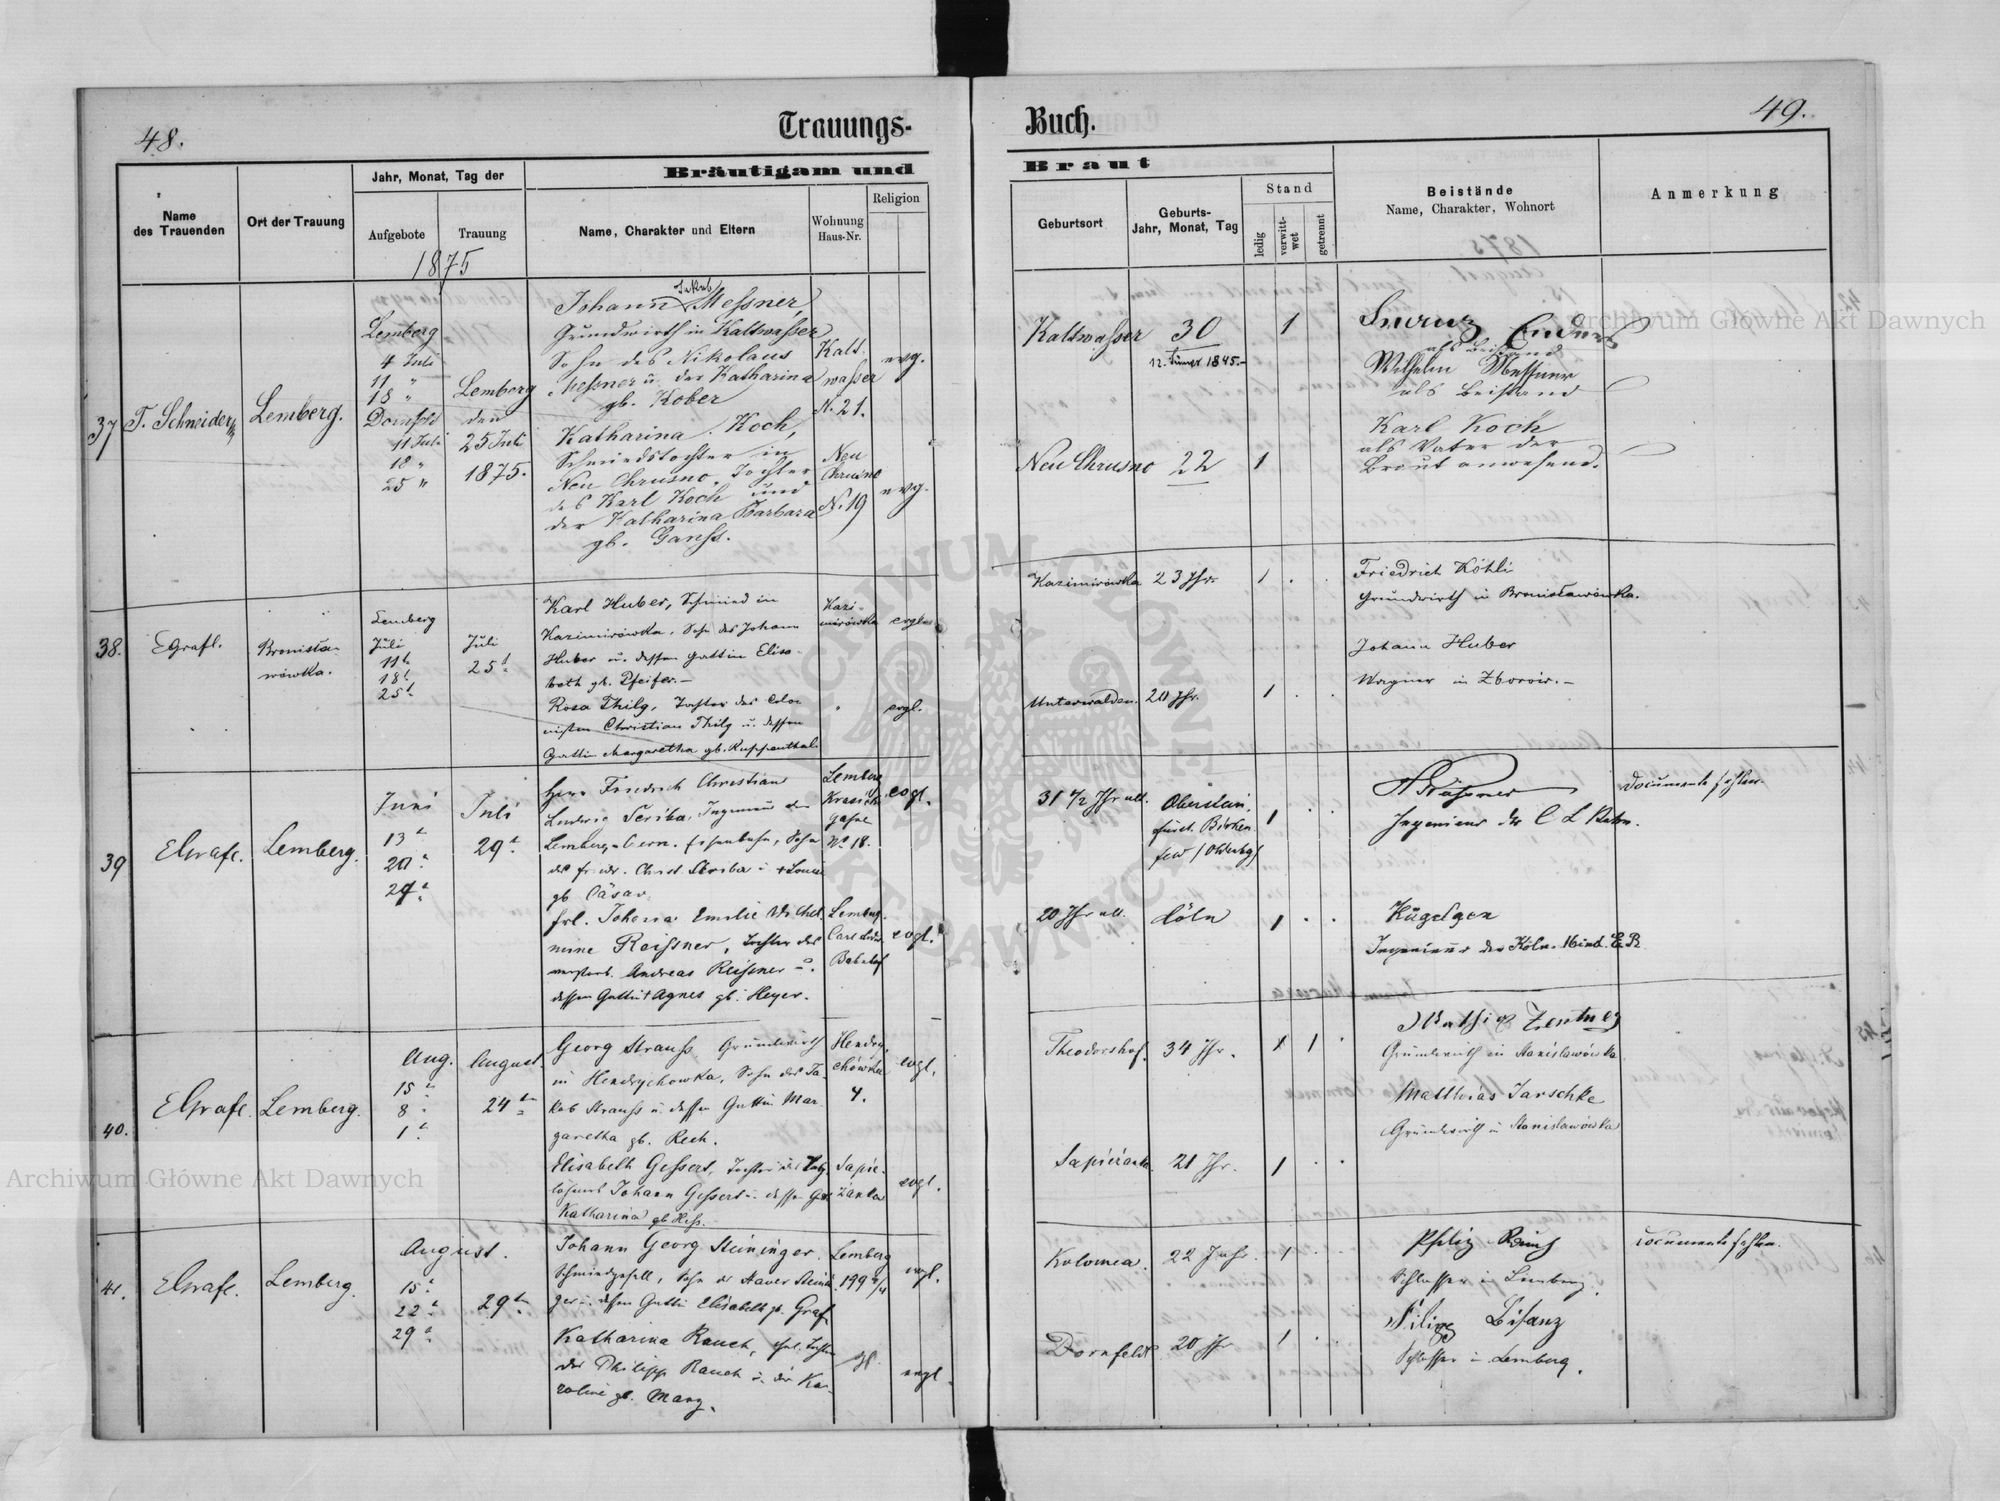 48.
Trauungs-
Buch.
49.
Bräutigam und
Braut
Name
des Trauenden
Ort der Trauung
Jahr, Monat, Tag der
Aufgebote
Trauung
Name, Charakter und Eltern
Wohnung
Haus-Nr.
Religion
Geburtsort
Geburts-
Jahr, Monat, Tag
Stand
ledig
verwitt-
wet
getrennt
Beistände
Name, Charakter, Wohnort
Anmerkung
1875
37
T. Schneider
Lemberg.
Lemberg
4 Juli
11 "
18 "
Dornfeld
11 Juli
18 "
25 "
Lemberg
den
25 Juli
1875.
Johann Jakob Messner,
Grundwirth in Kaltwasser
Sohn des Nikolaus
Messner u. der Katharina
gb. Kober
Kalt
wasser
N. 21.
evg.
Kaltwasser
30
12. Jänner 1845.-
1
als Beistand
Wilhelm Messner
als Beistand
Katharina Koch,
Schmiedstochter in
Neu Chrusno, Tochter
des Karl Koch und
der Katharina Barbara
gb. Ganss.
Neu
Chrusno
N. 19
evg.
Neu Chrusno
22
1
Karl Koch
als Vater der
Braut anwesend.
38.
EGrafl.
Bronisła-
wówka.
Lemberg
Juli
11t
18t
25t
Juli
25t
Karl Huber, Schmied in
Kazimirówka, Sohn des Johann
Huber u. dessen Gattin Elisa-
beth gb. Pfeifer.-
Kazi-
mirówka
evgl.
Kazimirówka
23 Jhr.
1
Friedrich Köhli
Grundwirth in Bronisławówka.
Rosa Thilg, Tochter des Colo-
nisten Christian Thilg u. dessen
Gattin Margaretha gb. Ruppenthal.
"
evgl.
Unterwalden.
20 Jhr.
1
Johann Huber
Wagner in Zborów.-
39
EGrafl.
Lemberg.
Juni
13t
20t
27t
Juli
29t
Herr Friedrich Christian
Ludwig Scriba, Ingenieur der
Lemberg-Czern. Eisenbahn, Sohn
des Friedr. Christ. Scriba u. Louise
gb. Cäsar.
Lemberg
Gasse
No 18.
evgl.
31 1/2 Jhr alt.
Oberstein,
1
Ingenieur der C L Bahn.
Documente fehlen.
Frl. Johanna Emilie Wilhel-
mine Reissner, Tochter des
verstorb. Andreas Reissner u.
dessen Gattin Agnes gb. Heyer.
Lemberg
Bahnhof
evgl.
20 Jhr alt.
Cöln
1
Kügelgen
Ingenieur der Köln-Mind. E. B.
40.
EGrafl.
Lemberg.
Aug.
15t
8t
1t
August.
24t
Georg Strauss, Grundwirth
in Hendrychowka, Sohn des Ja-
kob Strauss u. dessen Gattin Mar-
garetha gb. Rech.
Hendry-
chówka
4.
evgl.
Theodorshof.
34 Jhr.
1
Mathias Zentner
Grundwirth in Stanisławówka
Elisabeth Gessert, Tochter des Tag-
löhners Johann Gessert u. dessen Gatt.
Katharina gb. Hess.
Sapie-
żanka
evgl.
Sapieżanka.
21 Jhr.
1
Matthias Jarschke
Grundwirth in Stanisławówka
41.
EGrafl.
Lemberg.
August.
15t
22t
29t
29t
Johann Georg Steininger,
Schmiedgesell, Sohn des Xaver Steinin-
ger u. dessen Gattin Elisabeth gb. Graf
Lemberg
199 4/4
evgl.
Kolomea.
22 Jahr.
1
Schlosser in Lemberg.
Documente fehlen.
Katharina Rauch, ehel. Tochter
des Philipp Rauch u. der Ka-
roline gb. Manz.
evgl.
Dornfeld
20 Jhr
1
Filipp Bisanz
Schlosser in Lemberg.
Archiwum Główne Akt Dawnych
Archiwum Główne Akt Dawnych
ARCHIWUM GŁÓWNE AKT DAWNYCH